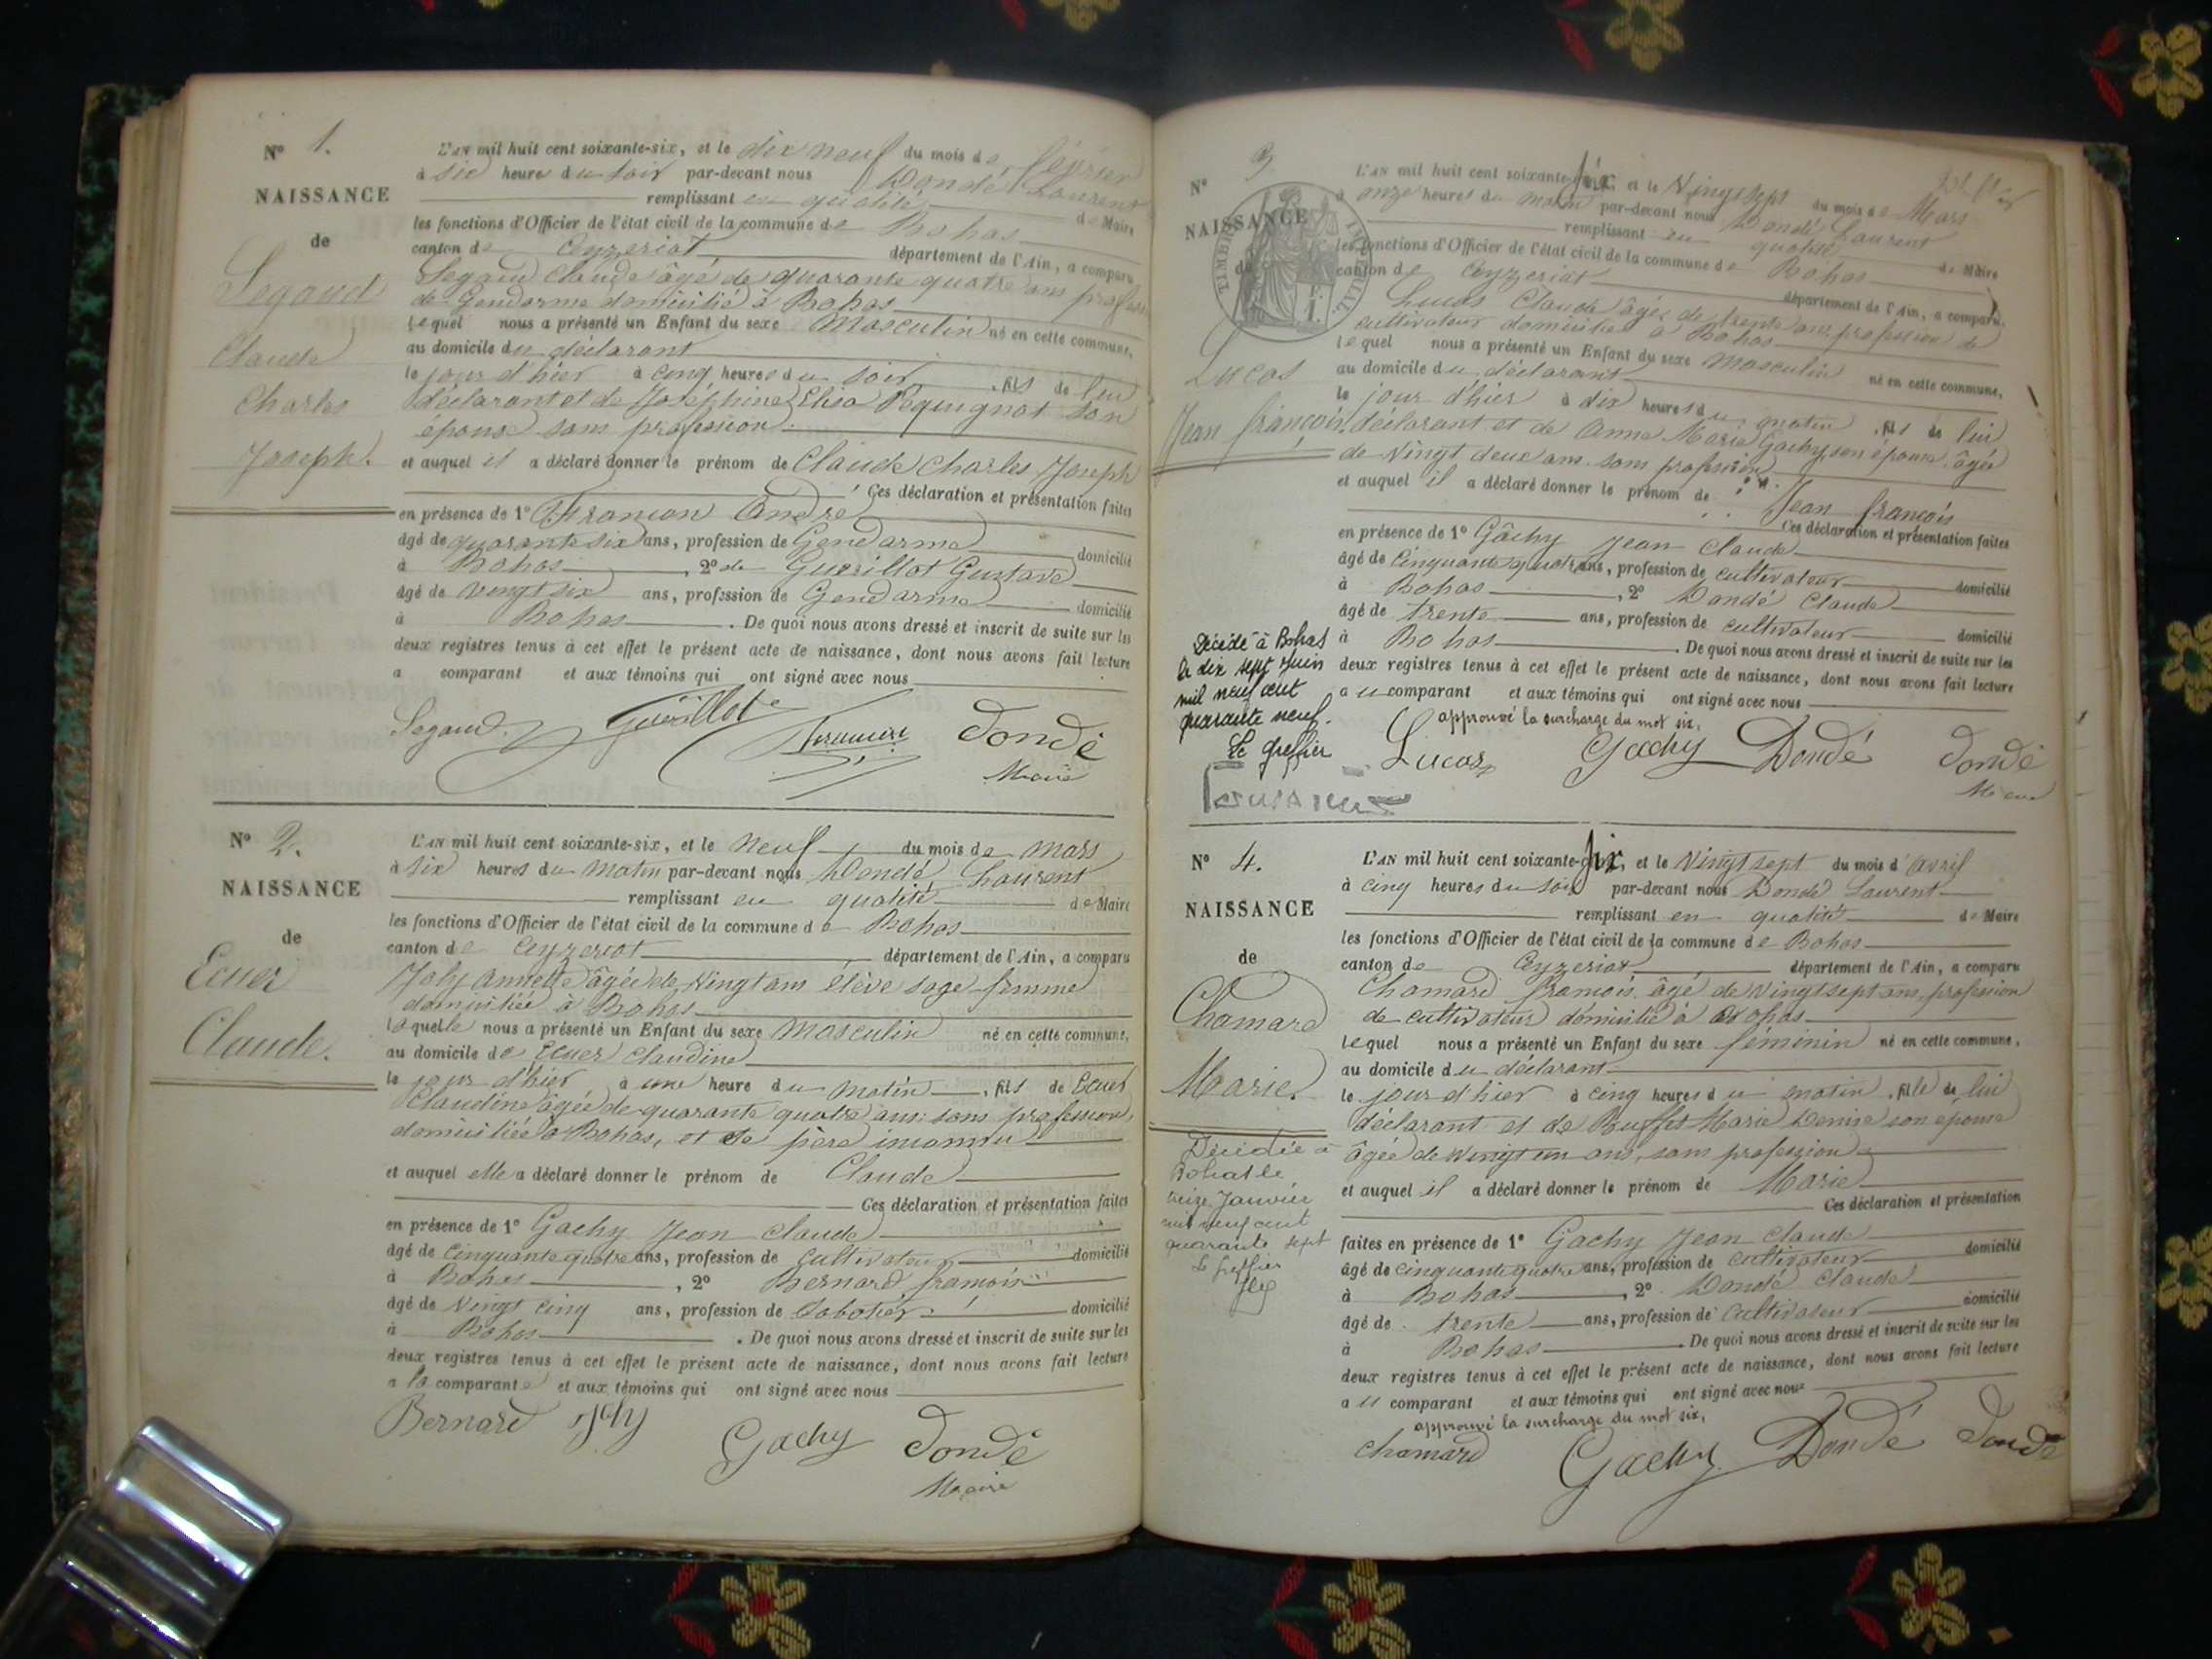 N° 1.
NAISSANCE
de
Segaud
Claude
Charles
Joseph.
L'AN mil huit cent soixante-six, et le dix neuf du mois de février
à six heures du soir par-devant nous Dondé Laurent
remplissant en qualité de Maire
les fonctions d'Officier de l'état civil de la commune de Bohas
canton de Ceyzeriat département de l'Ain, a comparu
Segaud Claude âgé de quarante quatre ans profession
de Gendarme domicilié à Bohas
lequel nous a présenté un Enfant du sexe Masculin né en cette commune,
au domicile du déclarant
le jour d'hier à cinq heures du soir, fils de lui
déclarant et de Joséphine Elisa Pequignot son
épouse sans profession.
et auquel il a déclaré donner le prénom de Claude Charles Joseph
Ces déclaration et présentation faites
en présence de 1° Françon André
âgé de quarante six ans, profession de Gendarme domicilié
à Bohas, 2° de Guerillot Gustave
âgé de vingt six ans, profession de Gendarme domicilié
à Bohas. De quoi nous avons dressé et inscrit de suite sur les
deux registres tenus à cet effet le présent acte de naissance, dont nous avons fait lecture
a comparant et aux témoins qui ont signé avec nous
Segaud. Guerillot Dondé
Maire
N° 2.
NAISSANCE
de
Ecuer
Claude.
L'AN mil huit cent soixante-six, et le neuf du mois de mars
à six heures du matin par-devant nous Dondé Laurent
remplissant en qualité de Maire
les fonctions d'Officier de l'état civil de la commune de Bohas
canton de Ceyzeriat département de l'Ain, a comparu
Joly Annette âgée de Vingt ans élève sage femme
domiciliée à Bohas
laquelle nous a présenté un Enfant du sexe Masculin né en cette commune,
au domicile de Ecuer Claudine
le jour d'hier, à une heure du matin, fils de Ecuer
Claudine âgée de quarante quatre ans sans profession,
domiciliée à Bohas, et de père inconnu
et auquel elle a déclaré donner le prénom de Claude
Ces déclaration et présentation faites
en présence de 1° Gachy Jean Claude
âgé de Cinquante quatre ans, profession de Cultivateur domicilié
à Bohas, 2° Bernard françois
âgé de Vingt cinq ans, profession de Sabotier domicilié
à Bohas. De quoi nous avons dressé et inscrit de suite sur les
deux registres tenus à cet effet le présent acte de naissance, dont nous avons fait lecture
a la comparante et aux témoins qui ont signé avec nous
Bernard Joly Gachy Dondé
Maire
N° 3
NAISSANCE
de
TIMBRE IMPERIAL
Lucas
Jean françois.
L'AN mil huit cent soixante-six, et le Vingt sept du mois de Mars
à onze heures du matin par-devant nous Dondé Laurent
remplissant en qualité de Maire
les fonctions d'Officier de l'état civil de la commune de Bohas
canton de Ceyzeriat département de l'Ain, a comparu
Lucas Claude âgé de trente ans profession de
cultivateur domicilié à Bohas
lequel nous a présenté un Enfant du sexe Masculin né en cette commune,
au domicile du déclarant
le jour d'hier à dix heures du matin, fils de lui
déclarant et de Anne Marie Gachy, son épouse âgée
de Vingt deux ans sans profession
et auquel il a déclaré donner le prénom de Jean françois
Ces déclaration et présentation faites
en présence de 1° Gâchy Jean Claude
âgé de Cinquante quatre ans, profession de cultivateur domicilié
à Bohas, 2° Dondé Claude
âgé de trente ans, profession de cultivateur domicilié
à Bohas. De quoi nous avons dressé et inscrit de suite sur les
deux registres tenus à cet effet le présent acte de naissance, dont nous avons fait lecture
au comparant et aux témoins qui ont signé avec nous
approuvé la surcharge du mot six.
Lucas Gachy Dondé Dondé
Maire
Décédé à Bohas
le dix sept Juin
mil neuf cent
quarante neuf.
Le greffier
N° 4.
NAISSANCE
de
Chamard
Marie.
L'AN mil huit cent soixante-six, et le Vingt sept du mois d'avril
à cinq heures du soir par-devant nous Dondé Laurent
remplissant en qualité de Maire
les fonctions d'Officier de l'état civil de la commune de Bohas
canton de Ceyzeriat département de l'Ain, a comparu
Chamard françois, âgé de Vingt sept ans, profession
de cultivateur domicilié à Bohas
lequel nous a présenté un Enfant du sexe féminin né en cette commune,
au domicile du déclarant
le jour d'hier à cinq heures du matin, fille de lui
déclarant et de Buffet Marie Denise son épouse
âgée de Vingt un ans, sans profession
et auquel il a déclaré donner le prénom de Marie
Ces déclaration et présentation
faites en présence de 1° Gachy Jean Claude
âgé de cinquante quatre ans, profession de cultivateur domicilié
à Bohas, 2° Dondé Claude
âgé de trente ans, profession de Cultivateur domicilié
à Bohas. De quoi nous avons dressé et inscrit de suite sur les
deux registres tenus à cet effet le présent acte de naissance, dont nous avons fait lecture
au comparant et aux témoins qui ont signé avec nous
approuvé la surcharge du mot six.
Chamard Gachy Dondé Dondé
Décédée à
Bohas le
treize Janvier
mil neuf cent
quarante sept
Le greffier